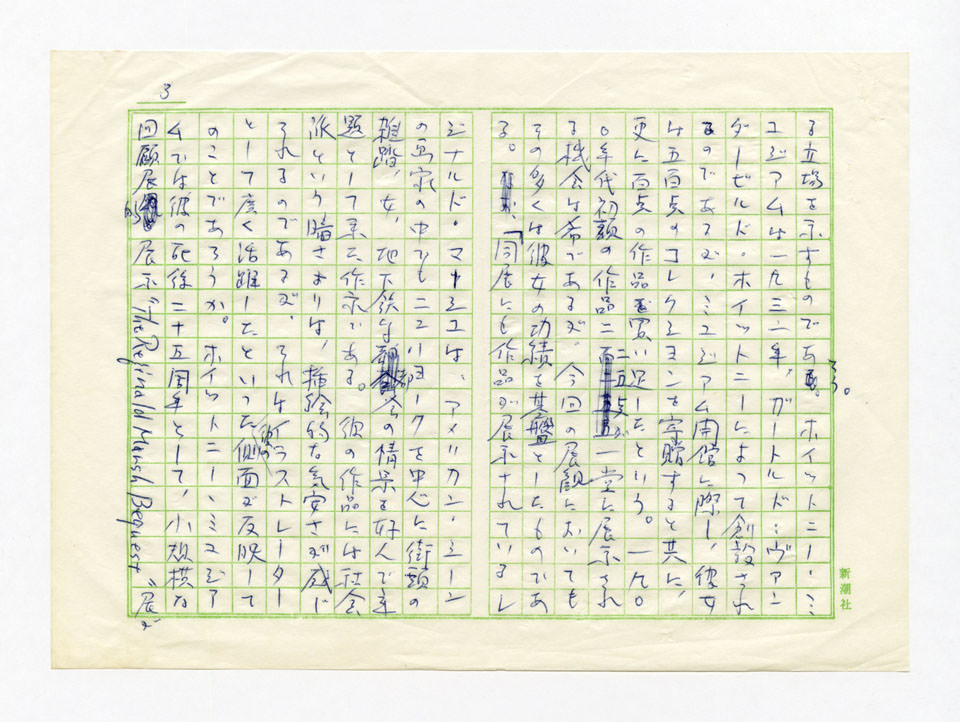 3
る立場を示すものであろう。ホイットニー・ミ
ュジアムは一九三一年、ガートルド・ヴァン
ダービルド・ホイットニーによって創設され
るのであるが、ミュジアム開館に際し、彼女
は五百点のコレクションを寄贈すると共に、
更に百点の作品を買い足したという。一九〇
〇年代初頭の作品二二五点が一堂に展示され
る機会は希であるが、今回の展観においても
その多くは彼女の功績を基盤としたものであ
る。「同展にも作品が展示されているレ
ジナルド・マーシュは、アメリカン・シーン
の画家の中でもニューヨークを中心に街頭の
雑踏、女、地下鉄等都会の情景を好んで主
題として来た作家である。彼の作品には社会
派という暗さよりは、挿絵的な気安さが感じ
られるのであるが、それは彼のイラストレーター
として広く活躍したといった側面が反映して
のことであろうか。ホイットニー・ミュジア
ムでは彼の死後二十五周年として、小規模な
回顧展から展示"The Reginald Marsh Bequest"展
新潮社